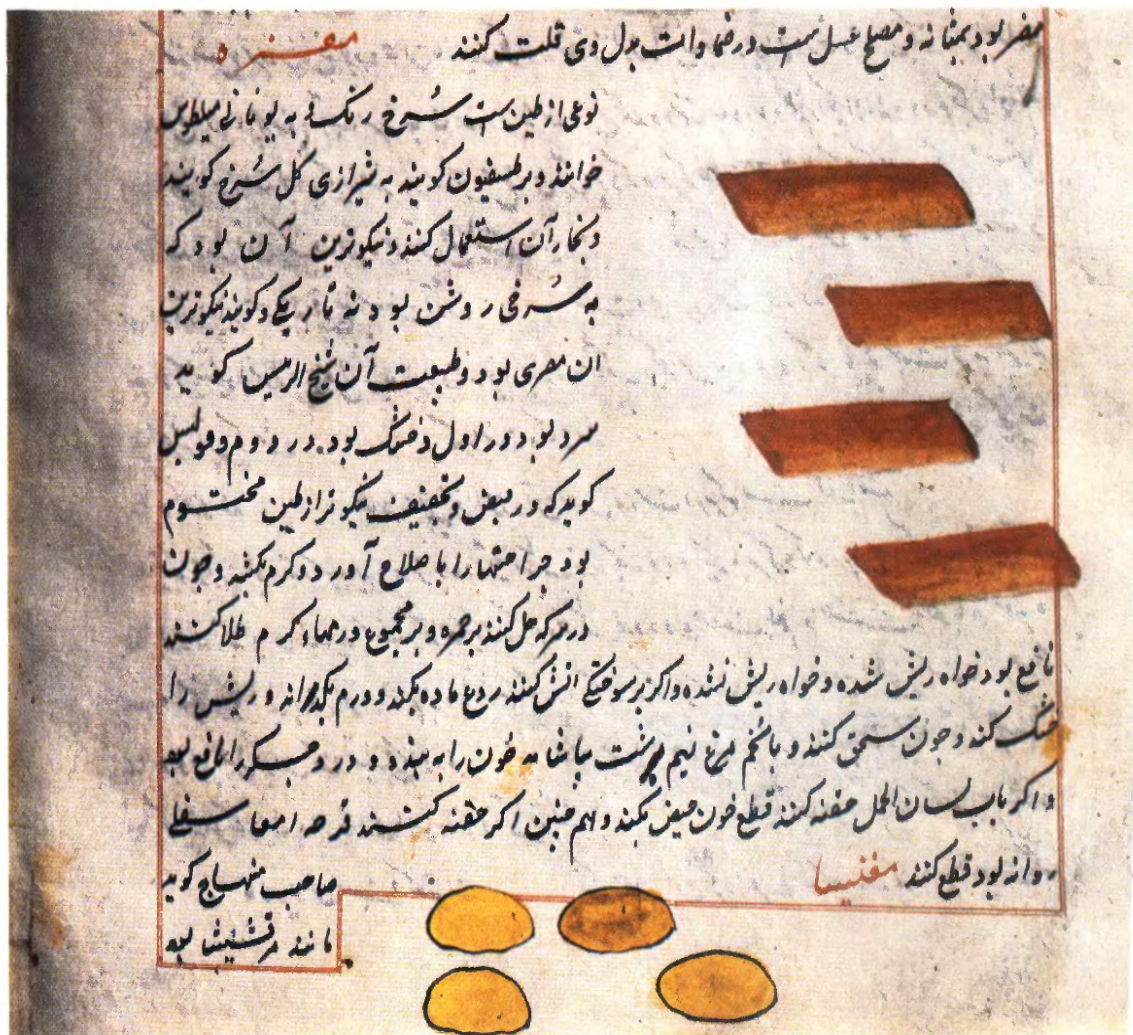 مضر بود بمثانه و مصلح عسل است و در ضمادات بدل وی قلت کنند مغره
نوعی از طین است سُرخ رنک و به یونانی میلطوس
خوانند و بر طسفیون کویند به شیرازی کل سُرخ کویند
و نجار آن استعمال کنند و نیکوترین آن بود که
به سُرخی روشن بود نه تاریکی و کویند نیکوترین
ان مصری بود و طبیعت آن شیخ الرئیس کوید
سرد بود در اول و خشک بود در دوم و بولس
کوید که در قبض و تجفیف نیکوتر از طین مختوم
بود جراحتها را باصلاح آورد و کرم بکشد و چون
در سرکه حل کنند بر حمره و بر مجموع ورمهاء کرم طلا کنند
نافع بود خواه ریش شده و خواه ریش نشده و اکر بر سوختکی اتش کنند ردع ماده بکند و ورم بکدازاند و ریش را
خشک کند و چون سحق کنند و با تخم مرغ نیم برشت بیاشامد خون را به بندد و درد جکر را نافع بود
و اکر باب لسان الحمل حقنه کنند قطع خون حیض بکند و هم چنین اکر حقنه کنند قرحه امعا سفلی
روانه بود قطع کنند مغنیسا
صاحب منهاج کوید
مانند مرقشیشا بود